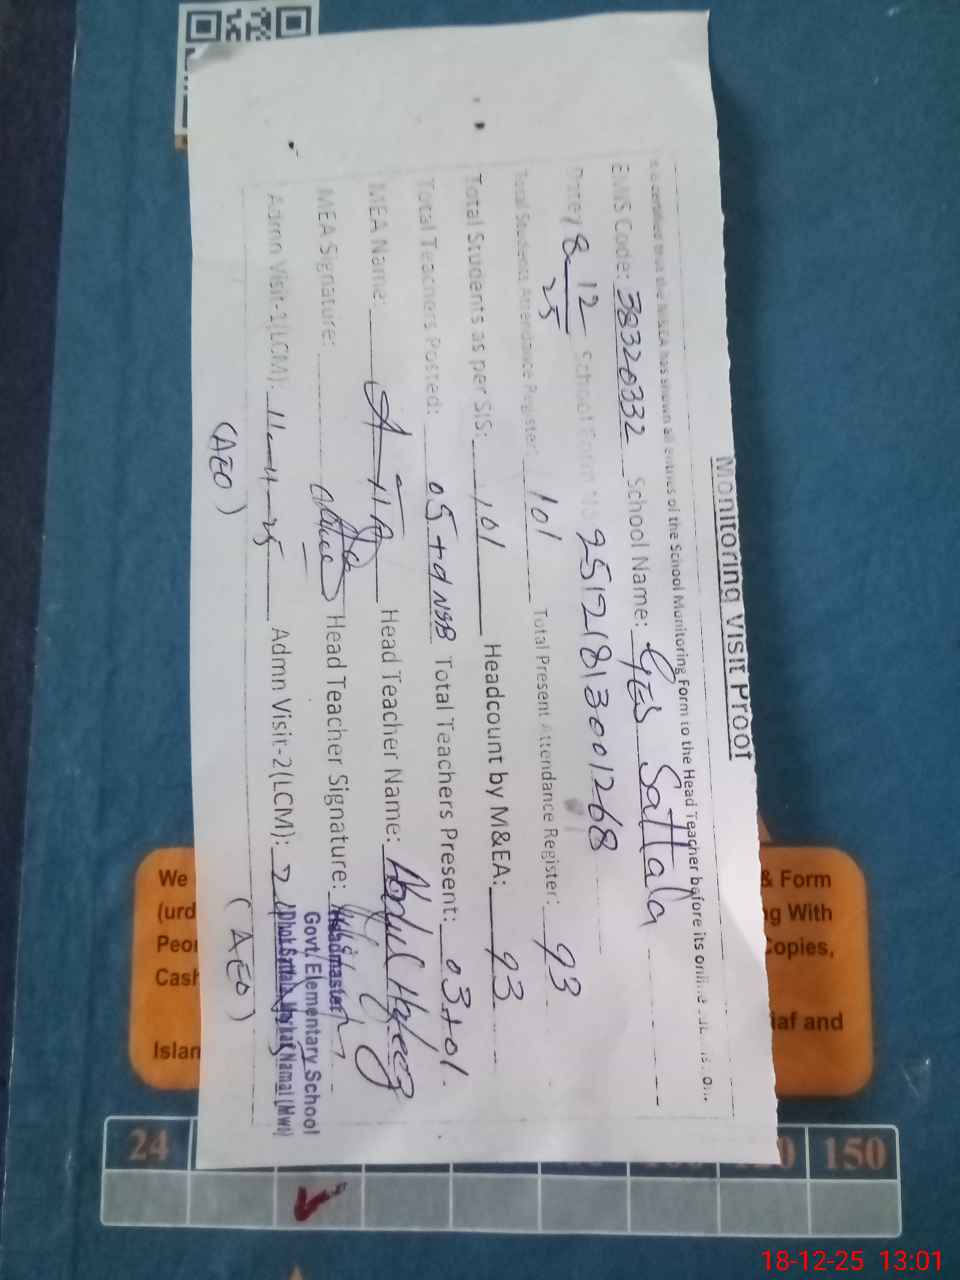 Monitoring Visit Proof
It is certified that the MEA has shown all entries of the School Monitoring Form to the Head Teacher before its online
EMIS Code: 38320332 School Name: GES Sattala
Date: 18-12-25 School Form No 25121813001268
Total Students Attendance Register: 101 Total Present Attendance Register: 93
Total Students as per SIS: 101 Headcount by M&EA: 93
Total Teachers Posted: 05+ Total Teachers Present: 03+01
MEA Name: Head Teacher Name: Abdul Hafeez
MEA Signature: Head Teacher Signature:
Headmaster
Govt. Elementary School
Dhok Sattala Markaz Namal (Mwi)
Admn Visit-1(LCM): 11-11-25 Admn Visit-2(LCM):
(AEO) (AEO)
We & Form
(urd ng With
Peo Copies,
Cash
iaf and
Islan
24 150
18-12-25 13:01